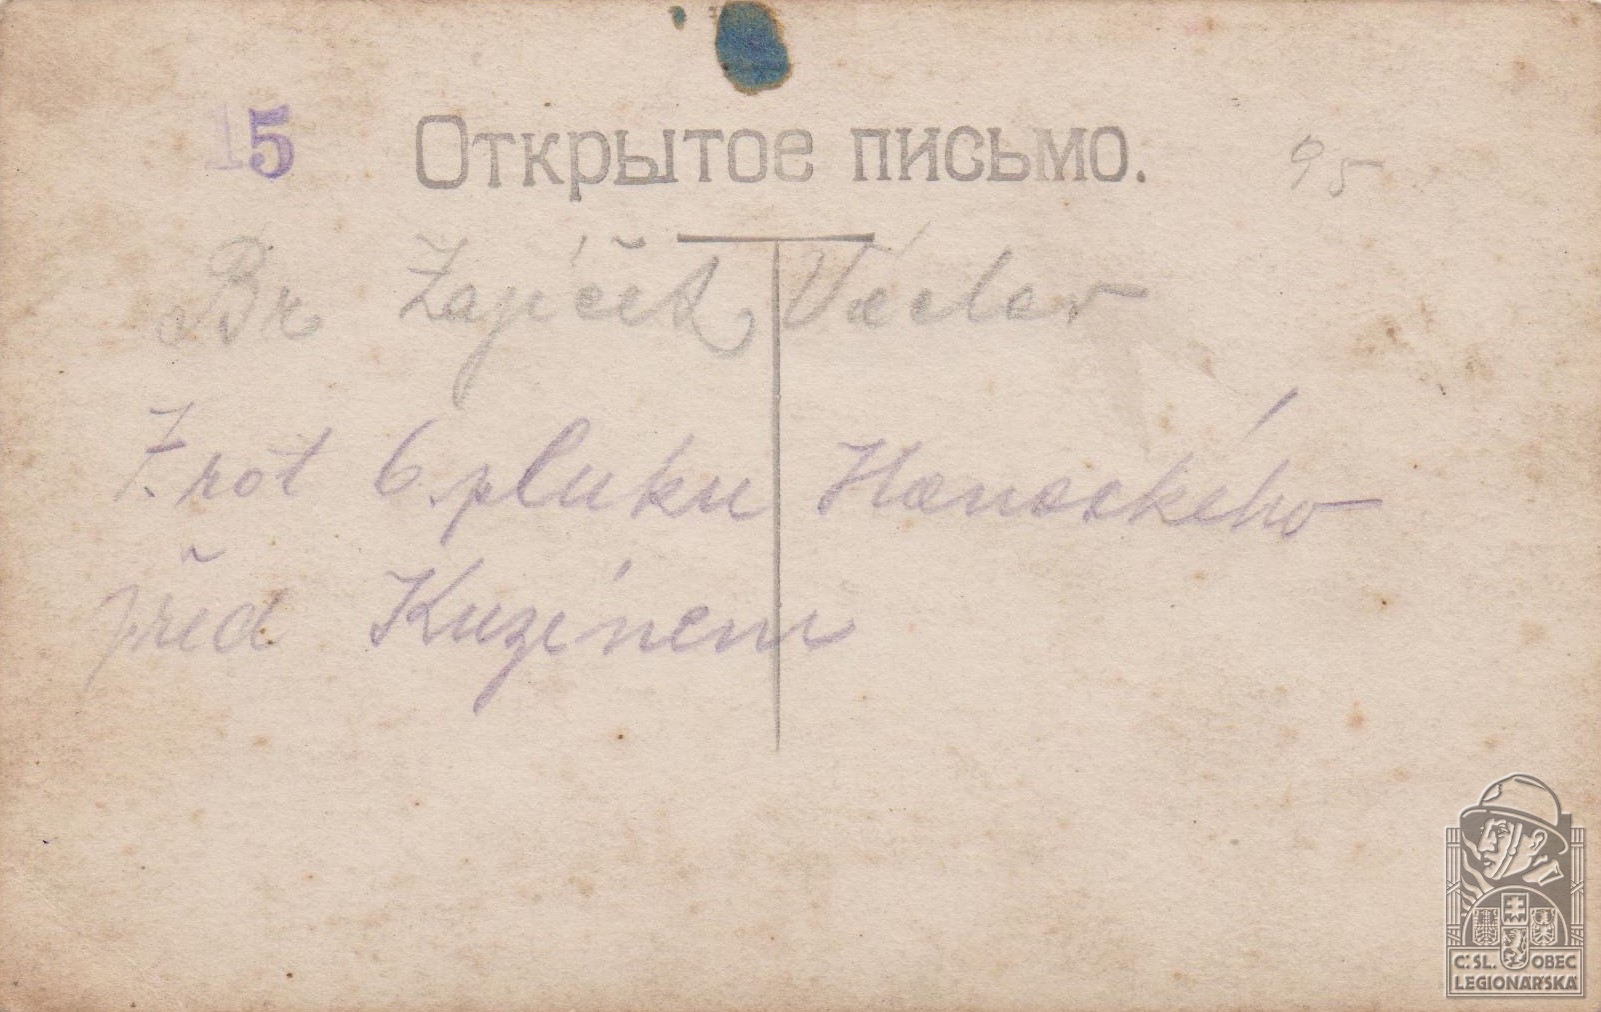 15 Открытое письмо. 95
Br Zajíček Václav
7. rot 6. pluku Hanáckého
před Kuzínem
Č. SL. OBEC
LEGIONÁŘSKÁ